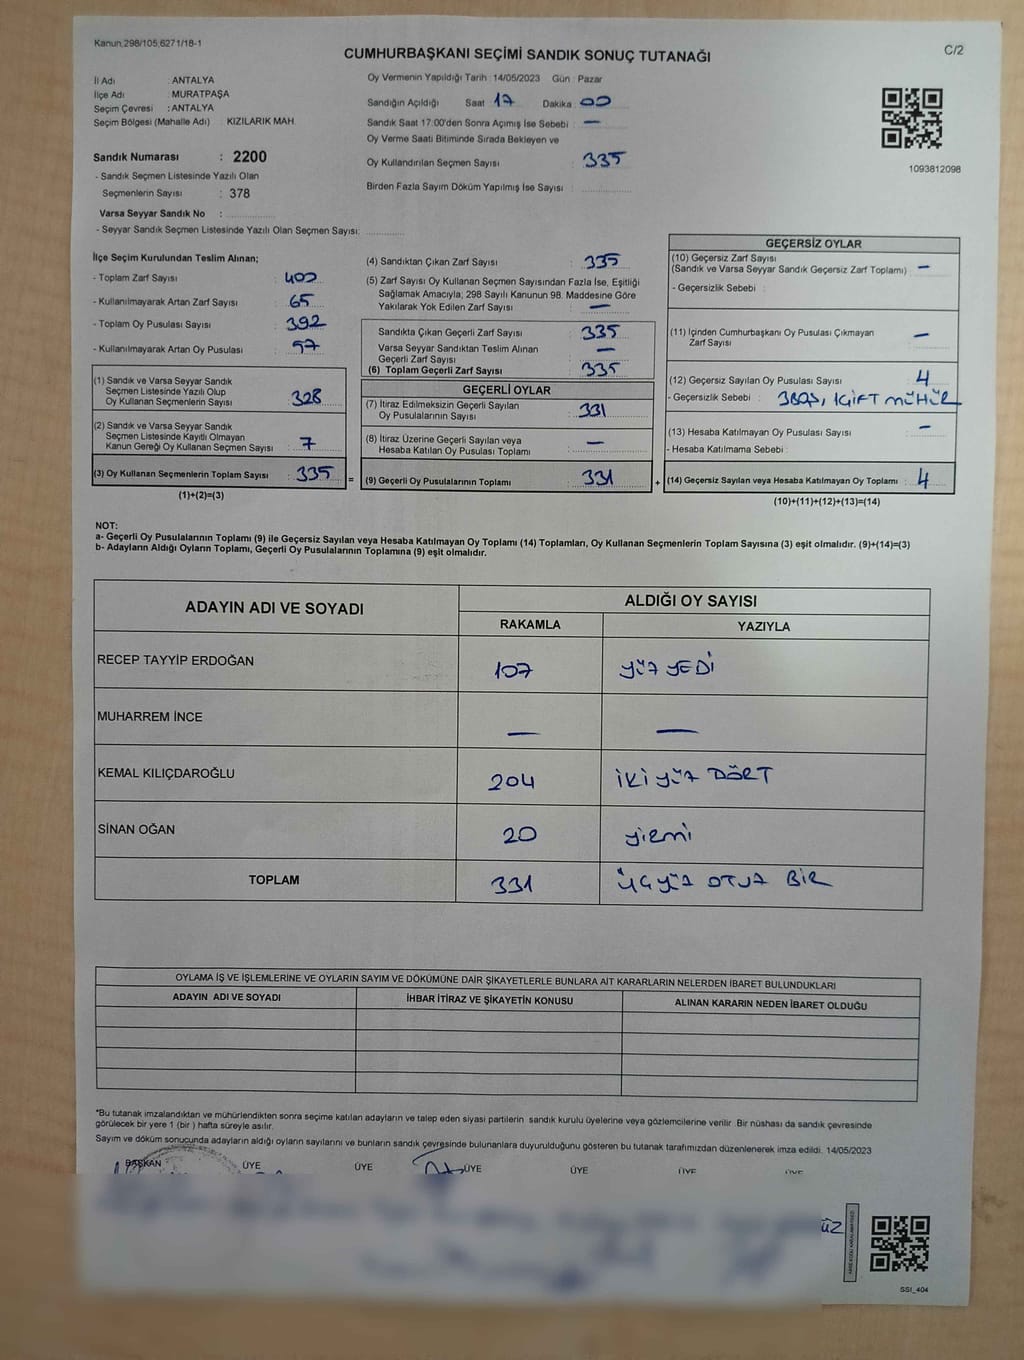 Kanun,298/105,6271/18-1
CUMHURBAŞKANI SEÇİMİ SANDIK SONUÇ TUTANAĞI
C/2
İl Adı : ANTALYA
İlçe Adı : MURATPAŞA
Seçim Çevresi : ANTALYA
Seçim Bölgesi (Mahalle Adı) : KIZILARIK MAH.
Sandık Numarası : 2200
- Sandık Seçmen Listesinde Yazılı Olan
Seçmenlerin Sayısı : 378
Varsa Seyyar Sandık No :
- Seyyar Sandık Seçmen Listesinde Yazılı Olan Seçmen Sayısı:
Oy Vermenin Yapıldığı Tarih : 14/05/2023 Gün : Pazar
Sandığın Açıldığı Saat 17 Dakika : 00
Sandık Saat 17:00'den Sonra Açımış İse Sebebi : —
Oy Verme Saati Bitiminde Sırada Bekleyen ve
Oy Kullandırılan Seçmen Sayısı : 335
Birden Fazla Sayım Döküm Yapılmış İse Sayısı :
1093812098
İlçe Seçim Kurulundan Teslim Alınan;
- Toplam Zarf Sayısı : 400
- Kullanılmayarak Artan Zarf Sayısı : 65
- Toplam Oy Pusulası Sayısı : 392
- Kullanılmayarak Artan Oy Pusulası : 57
(1) Sandık ve Varsa Seyyar Sandık
Seçmen Listesinde Yazılı Olup
Oy Kullanan Seçmenlerin Sayısı : 328
(2) Sandık ve Varsa Seyyar Sandık
Seçmen Listesinde Kayıtlı Olmayan
Kanun Gereği Oy Kullanan Seçmen Sayısı : 7
(3) Oy Kullanan Seçmenlerin Toplam Sayısı : 335 =
(1)+(2)=(3)
(4) Sandıktan Çıkan Zarf Sayısı : 335
(5) Zarf Sayısı Oy Kullanan Seçmen Sayısından Fazla İse, Eşitliği
Sağlamak Amacıyla; 298 Sayılı Kanunun 98. Maddesine Göre
Yakılarak Yok Edilen Zarf Sayısı : —
Sandıkta Çıkan Geçerli Zarf Sayısı : 335
Varsa Seyyar Sandıktan Teslim Alınan
Geçerli Zarf Sayısı : —
(6) Toplam Geçerli Zarf Sayısı : 335
GEÇERLİ OYLAR
(7) İtiraz Edilmeksizin Geçerli Sayılan
Oy Pusulalarının Sayısı : 331
(8) İtiraz Üzerine Geçerli Sayılan veya
Hesaba Katılan Oy Pusulası Toplamı : —
(9) Geçerli Oy Pusulalarının Toplamı : 331 +
GEÇERSİZ OYLAR
(10) Geçersiz Zarf Sayısı
(Sandık ve Varsa Seyyar Sandık Geçersiz Zarf Toplamı) : —
- Geçersizlik Sebebi :
(11) İçinden Cumhurbaşkanı Oy Pusulası Çıkmayan
Zarf Sayısı : —
(12) Geçersiz Sayılan Oy Pusulası Sayısı : 4
- Geçersizlik Sebebi : 3BOŞ, 1ÇİFT MÜHÜR
(13) Hesaba Katılmayan Oy Pusulası Sayısı : —
- Hesaba Katılmama Sebebi :
(14) Geçersiz Sayılan veya Hesaba Katılmayan Oy Toplamı : 4
(10)+(11)+(12)+(13)=(14)
NOT:
a- Geçerli Oy Pusulalarının Toplamı (9) ile Geçersiz Sayılan veya Hesaba Katılmayan Oy Toplamı (14) Toplamları, Oy Kullanan Seçmenlerin Toplam Sayısına (3) eşit olmalıdır. (9)+(14)=(3)
b- Adayların Aldığı Oyların Toplamı, Geçerli Oy Pusulalarının Toplamına (9) eşit olmalıdır.
ADAYIN ADI VE SOYADI ALDIĞI OY SAYISI
RAKAMLA YAZIYLA
RECEP TAYYİP ERDOĞAN 107 YÜZ YEDİ
MUHARREM İNCE — —
KEMAL KILIÇDAROĞLU 204 İKİ YÜZ DÖRT
SİNAN OĞAN 20 yirmi
TOPLAM 331 ÜÇ YÜZ OTUZ BİR
OYLAMA İŞ VE İŞLEMLERİNE VE OYLARIN SAYIM VE DÖKÜMÜNE DAİR ŞİKAYETLERLE BUNLARA AİT KARARLARIN NELERDEN İBARET BULUNDUKLARI
ADAYIN ADI VE SOYADI İHBAR İTİRAZ VE ŞİKAYETİN KONUSU ALINAN KARARIN NEDEN İBARET OLDUĞU
*Bu tutanak imzalandıktan ve mühürlendikten sonra seçime katılan adayların ve talep eden siyasi partilerin sandık kurulu üyelerine veya gözlemcilerine verilir. Bir nüshası da sandık çevresinde
görülecek bir yere 1 (bir ) hafta süreyle asılır.
Sayım ve döküm sonucunda adayların aldığı oyların sayılarını ve bunların sandık çevresinde bulunanlara duyurulduğunu gösteren bu tutanak tarafımızdan düzenlenerek imza edildi. 14/05/2023
BAŞKAN ÜYE ÜYE ÜYE ÜYE ÜYE ÜYE
ÜZ
SSI_404